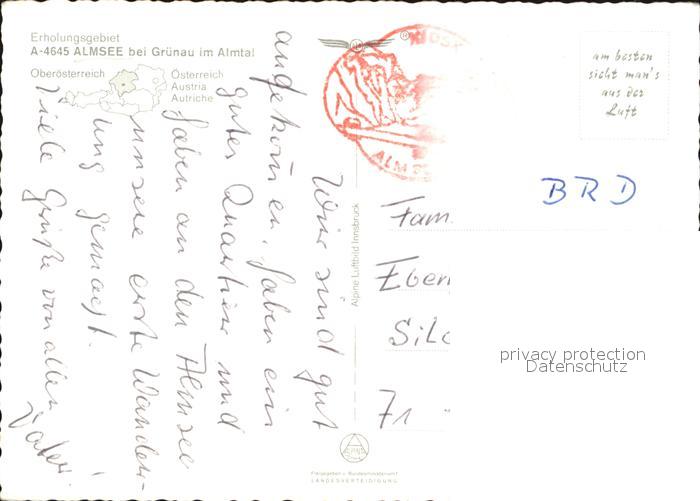 Erholungsgebiet
A-4645 ALMSEE bei Grünau im Almtal
Oberösterreich
Österreich
Austria
Autriche
Wir sind gut
angekommen, haben ein
gutes Quartier und
haben an den Almsee
unsere erste Wander-
ung gemacht.
Viele Grüße von allen
Vater
Alpine Luftbild Innsbruck
KIOSK
ALMSEE
am besten
sieht man's
aus der
Luft
BRD
Fam.
Eber
71
privacy protection
Datenschutz
Freigegeben v. Bundesministerium f.
LANDESVERTEIDIGUNG